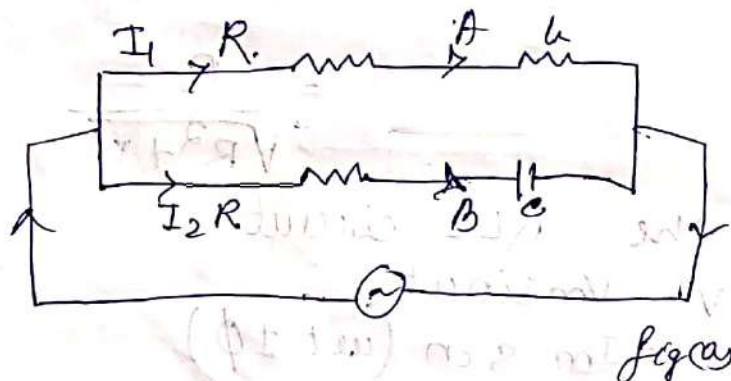 I₁ R. A L
I₂ R B C
~
fig(a)